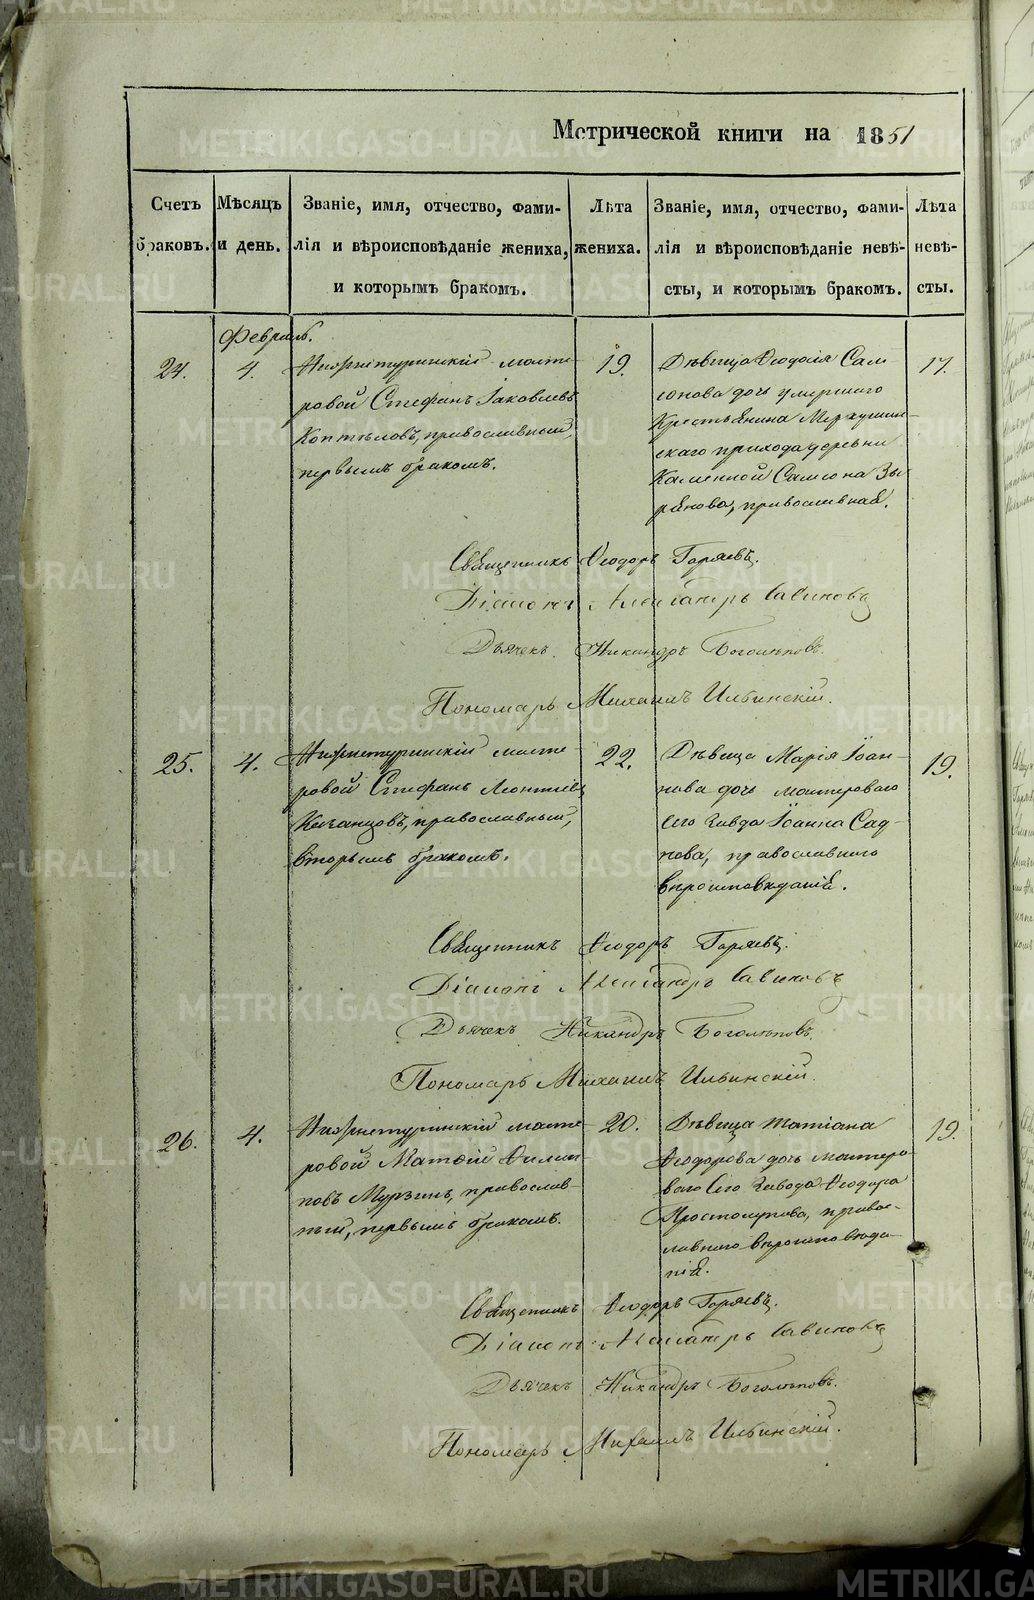 Метрической книги на 1851
Счетъ браковъ.
Мѣсяцъ и день.
Званіе, имя, отчество, фами-
лія и вѣроисповѣданіе жениха,
и которымъ бракомъ.
Лѣта жениха.
Званіе, имя, отчество, фами-
лія и вѣроисповѣданіе невѣ-
сты, и которымъ бракомъ.
Лѣта невѣ-
сты.
Февраль.
24.
4.
Нижнетуринскій масте-
ровой Стефанъ Іаковлевъ
Коптѣловъ, православный,
первымъ бракомъ.
19.
Дѣвица Ѳеодосія Сам-
сонова дочь умершаго
Крестьянина Меркушин-
скаго прихода деревни
Каменной Самсона Зы-
рянова, православная.
17.
Священникъ Ѳеодоръ Горяевъ.
Діаконъ Александръ Савиновъ
Дьячекъ Никандръ Боголѣповъ.
Пономарь Михаилъ Ильинскій.
25.
4.
Нижнетуринскій масте-
ровой Стефанъ Леонтіевъ
Казанцовъ, православный,
вторымъ бракомъ.
22.
Дѣвица Марія Іоан-
нова дочь мастероваго
сего завода Іоанна
православнаго
вѣроисповѣданія.
19.
Священникъ Ѳеодоръ Горяевъ.
Діаконъ Александръ Савиновъ
Дьячекъ Никандръ Боголѣповъ.
Пономарь Михаилъ Ильинскій.
26.
4.
Нижнетуринскій масте-
ровой Матѳій Филип-
повъ Мурзинъ, православ-
ный, первымъ бракомъ.
20.
Дѣвица Татіана
Ѳеодорова дочь мастеро-
ваго сего завода Ѳеодора
Простолупова, право-
славнаго вѣроисповѣда-
нія.
19.
Священникъ Ѳеодоръ Горяевъ.
Діаконъ Александръ Савиновъ
Дьячекъ Никандръ Боголѣповъ.
Пономарь Михаилъ Ильинскій.
METRIKI.GASO-URAL.RU